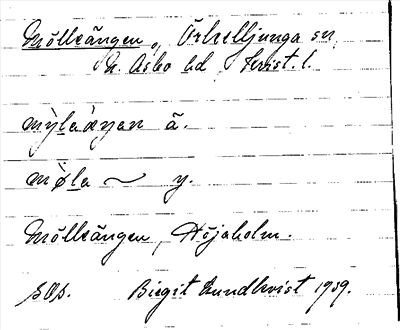 Mölleängen, Örkelljunga sn
N. Åsbo hd, Krist. l.
mỳlaæ̀ŋən ä.
mø̀la ~ y.
Mölleängen, Höjaholm.
SOS. Birgit Lundkvist 1939.